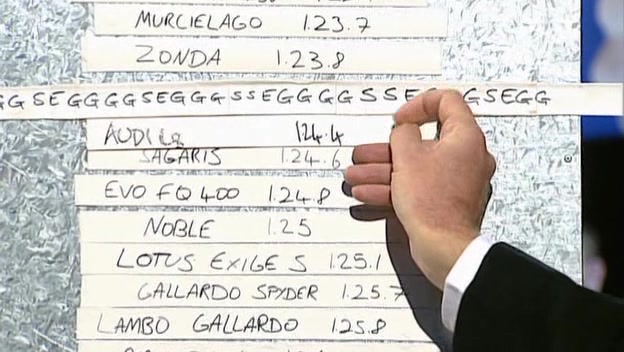 MURCIELAGO 1.23.7
ZONDA 1.23.8
GGSEGGGGSEGGGSSEGGGGSSEG GSEGG
AUDI 124.4
SAGARIS 1.24.6
EVO FQ 400 1.24.8
NOBLE 1.25
LOTUS EXIGE S 1.25.1
GALLARDO SPYDER 1.25.7
LAMBO GALLARDO 1.25.8